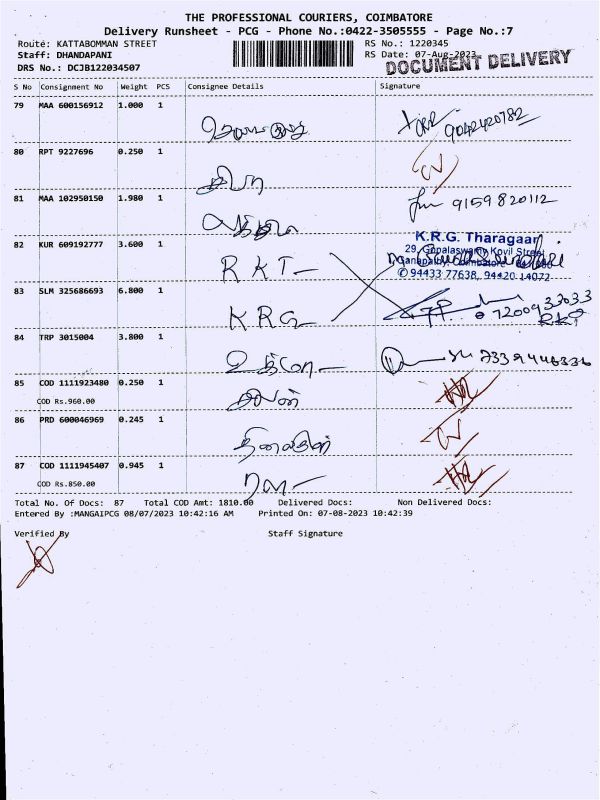 THE PROFESSIONAL COURIERS, COIMBATORE
Delivery Runsheet - PCG - Phone No.:0422-3505555 - Page No.:7
Route: KATTABOMMAN STREET RS No.: 1220345
Staff: DHANDAPANI RS Date: 07-Aug-2023
DRS No.: DCJB122034507 DOCUMENT DELIVERY
S No Consignment No Weight PCS Consignee Details Signature
79 MAA 600156912 1.000 1
9042420782
80 RPT 9227696 0.250 1
சிவா
81 MAA 102950150 1.980 1
9159820112
82 KUR 609192777 3.600 1 K.R.G. Thangaar
29, Gopalaswamy Kovil Street
RKT Ganapathy, Coimbatore
✆ 94433 77638, 94420 14072
83 SLM 325686693 6.800 1
KRG 7200933033
RKT
84 TRP 3015004 3.800 1
85 COD 1111923480 0.250 1
COD Rs.960.00
86 PRD 600046969 0.245 1
87 COD 1111945407 0.945 1
COD Rs.850.00
Total No. Of Docs: 87 Total COD Amt: 1810.00 Delivered Docs: Non Delivered Docs:
Entered By :MANGAIPCG 08/07/2023 10:42:16 AM Printed On: 07-08-2023 10:42:39
Verified By Staff Signature